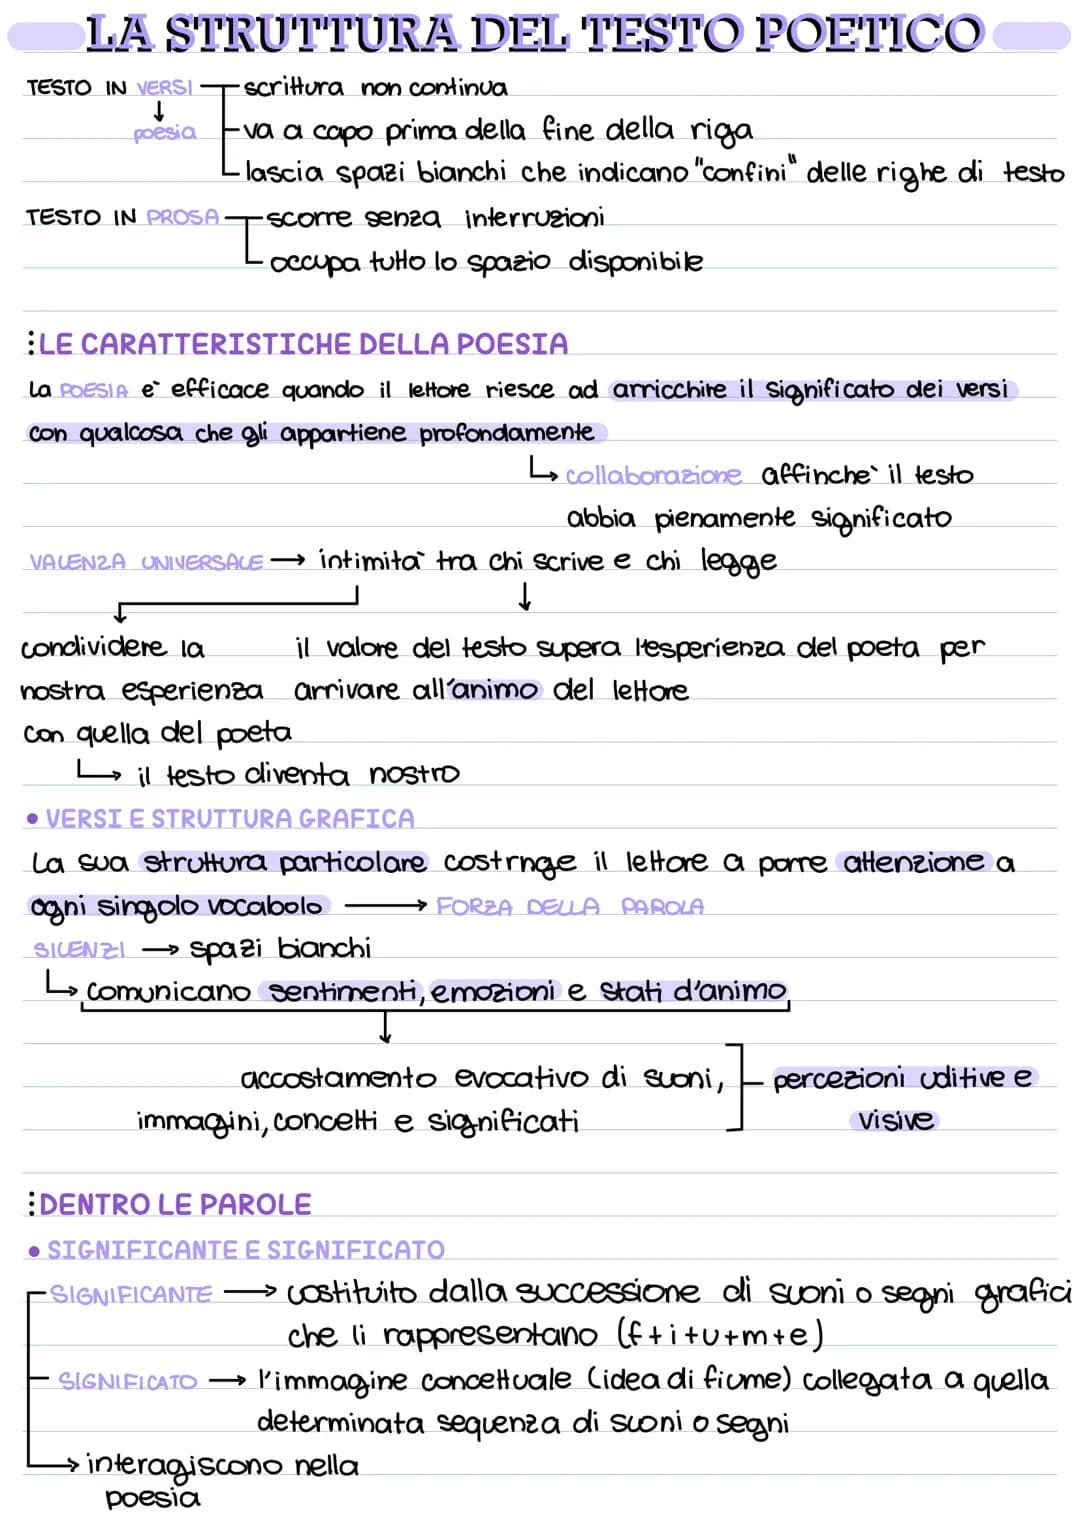 LA STRUTTURA DEL TESTO POETICO
TESTO IN VERSI scrittura non continua
↓
poesia va a capo prima della fine della riga
lascia spazi bianchi che indicano "confini" delle righe di testo
TESTO IN PROSA scorre senza interruzioni
occupa tutto lo spazio disponibile
LE CARATTERISTICHE DELLA POESIA
La POESIA e` efficace quando il lettore riesce ad arricchire il significato dei versi
con qualcosa che gli appartiene profondamente
↳ collaborazione affinche` il testo
abbia pienamente significato
VALENZA UNIVERSALE → intimita` tra chi scrive e chi legge
condividere la il valore del testo supera l'esperienza del poeta per
nostra esperienza arrivare all'animo del lettore
con quella del poeta
↳ il testo diventa nostro
• VERSI E STRUTTURA GRAFICA
La sua struttura particolare costrnge il lettore a porre attenzione a
ogni singolo vocabolo → FORZA DELLA PAROLA
SILENZI → spazi bianchi
↳ comunicano sentimenti, emozioni e stati d'animo
↓
accostamento evocativo di suoni, percezioni uditive e
immagini, concetti e significati visive
DENTRO LE PAROLE
• SIGNIFICANTE E SIGNIFICATO
SIGNIFICANTE → costituito dalla successione di suoni o segni grafici
che li rappresentano (f+i+u+m+e)
SIGNIFICATO → l'immagine concettuale (idea di fiume) collegata a quella
determinata sequenza di suoni o segni
→ interagiscono nella
poesia